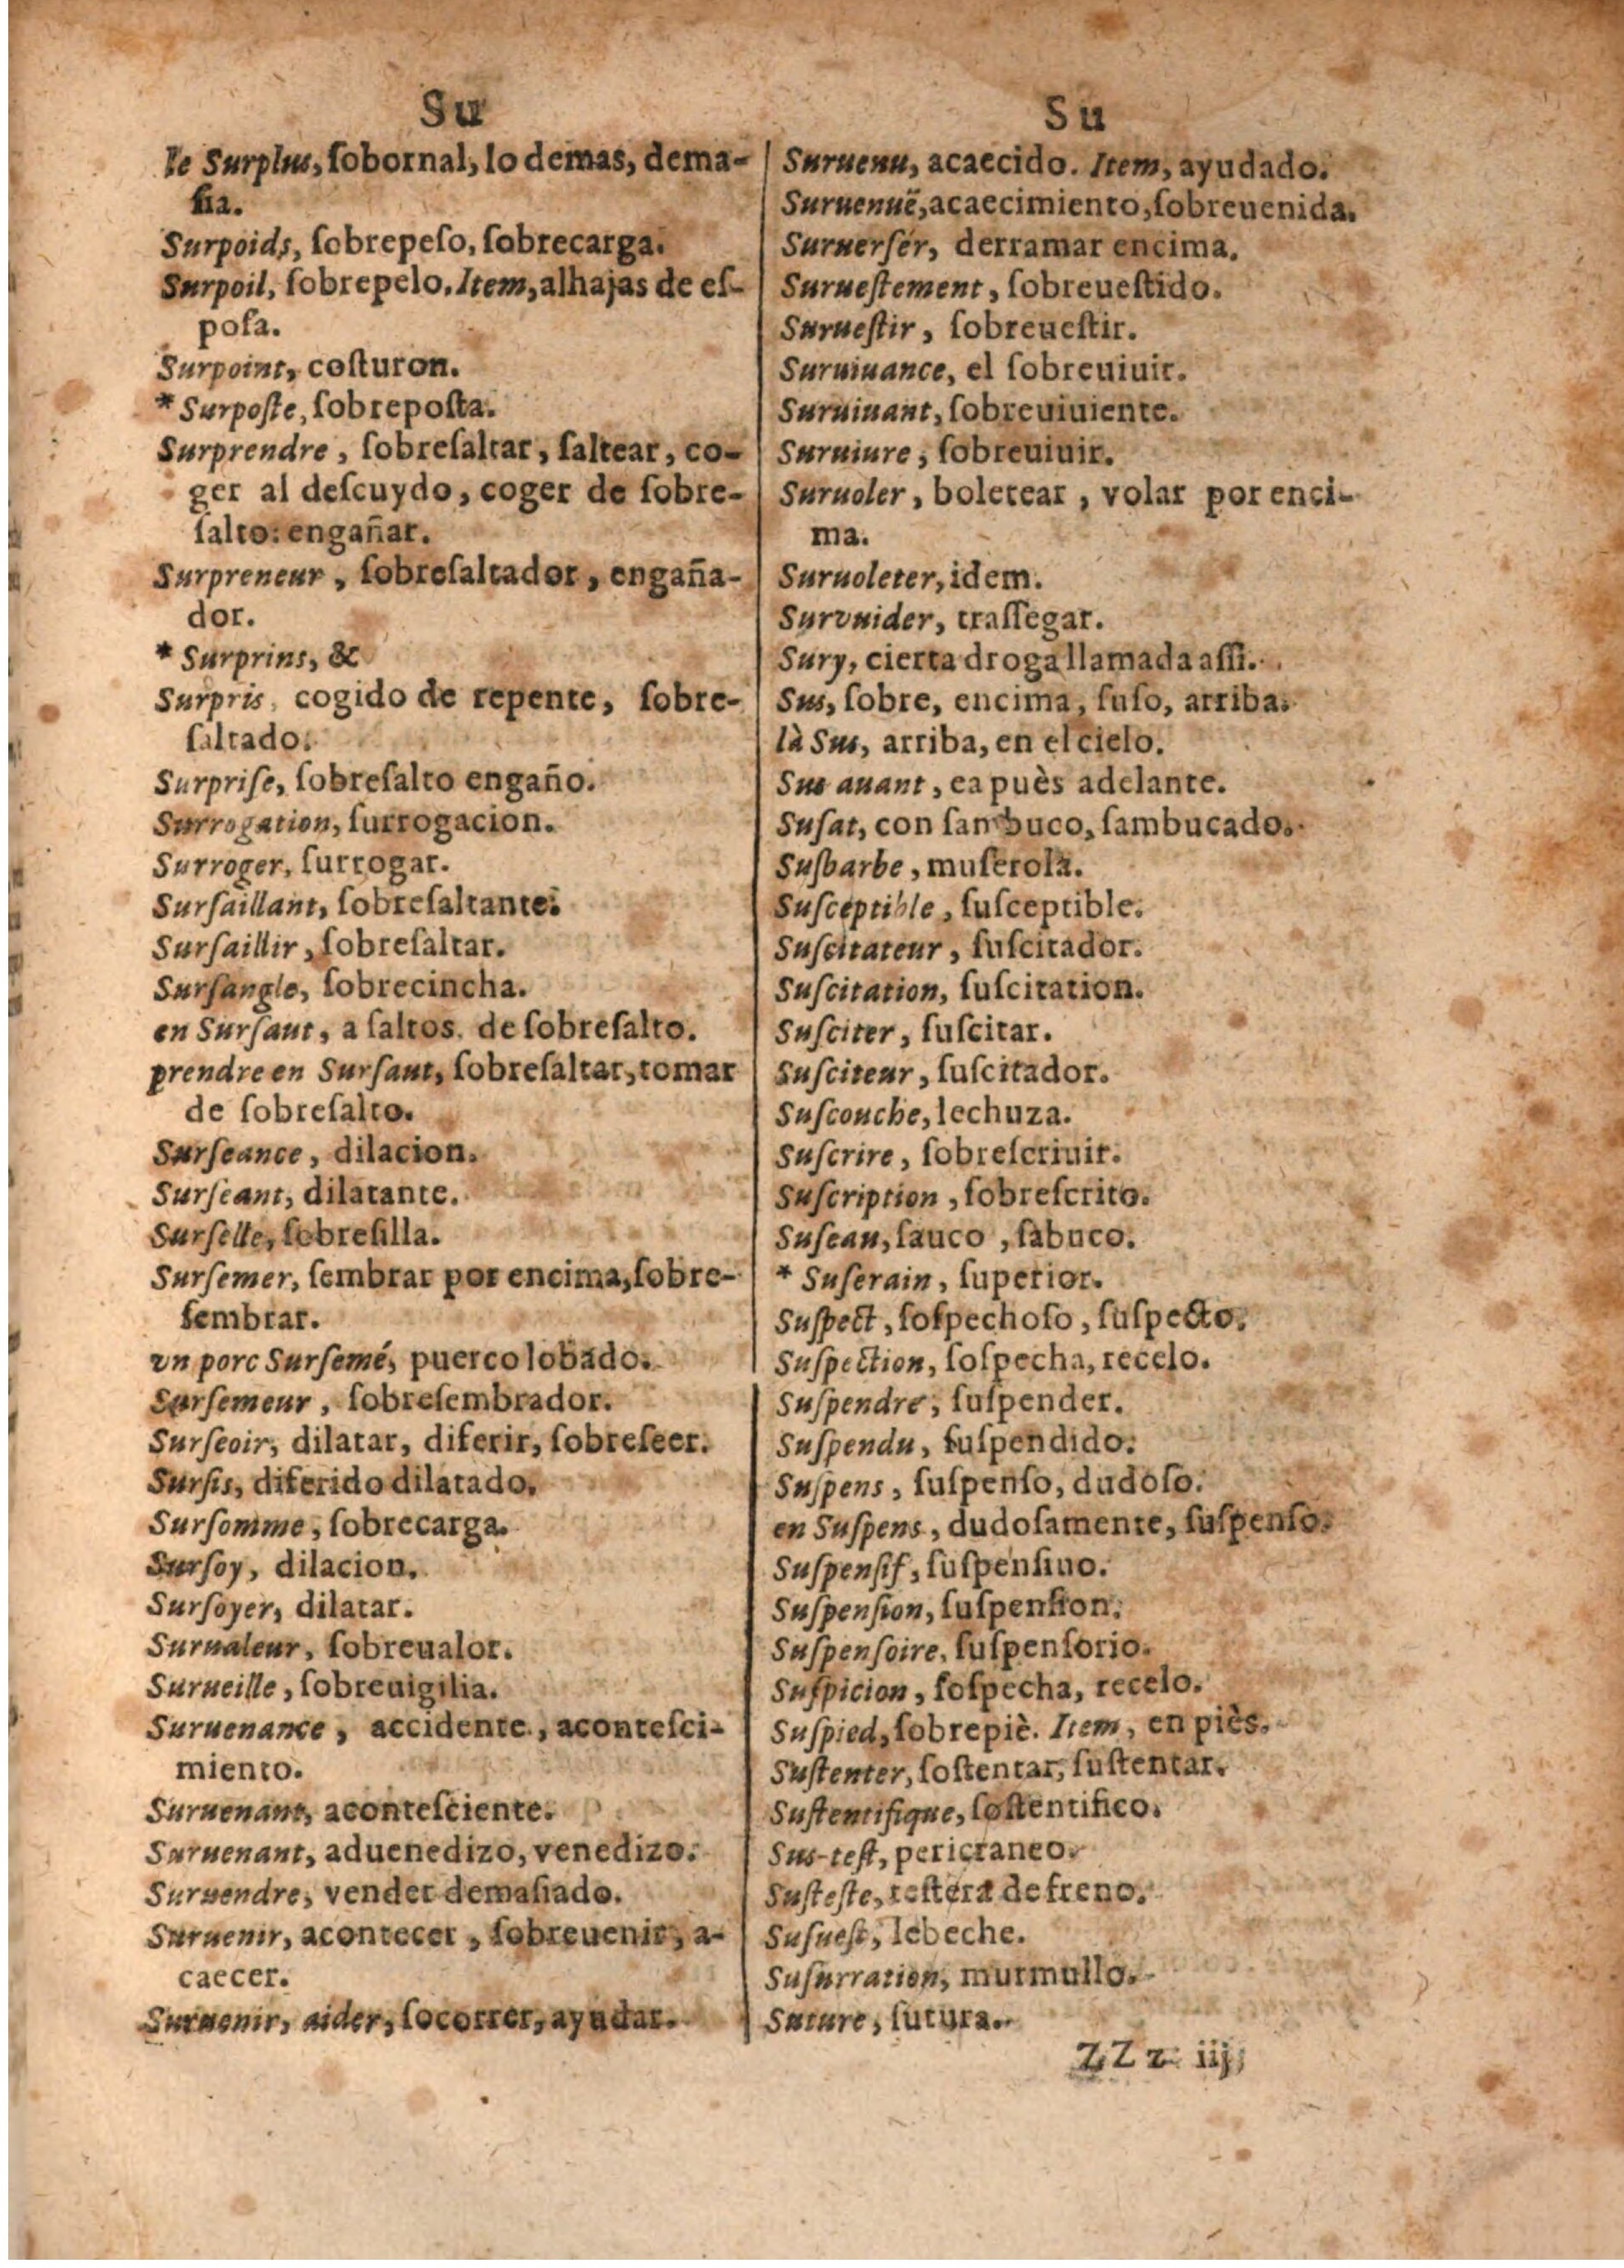 Su
le Surplus, ſobornal, lo demas, dema-
ſia.
Surpoids, ſobrepeſo, ſobrecarga.
Surpoil, ſobrepelo. Item, alhajas de eſ-
poſa.
Surpoint, coſturon.
* Surpoſte, ſobrepoſta.
Surprendre, ſobreſaltar, ſaltear, co-
ger al deſcuydo, coger de ſobre-
ſalto: engañar.
Surpreneur, ſobreſaltador, engaña-
dor.
* Surprins, &
Surpris, cogido de repente, ſobre-
ſaltado.
Surpriſe, ſobreſalto engaño.
Surrogation, ſurrogacion.
Surroger, ſurrogar.
Surſaillant, ſobreſaltante.
Surſaillir, ſobreſaltar.
Surſangle, ſobrecincha.
en Surſaut, a ſaltos. de ſobreſalto.
prendre en Surſaut, ſobreſaltar, tomar
de ſobreſalto.
Surſeance, dilacion.
Surſeant, dilatante.
Surſelle, ſobreſilla.
Surſemer, ſembrar por encima, ſobre-
ſembrar.
vn porc Surſemé, puerco lobado.
Surſemeur, ſobreſembrador.
Surſeoir, dilatar, diferir, ſobreſeer.
Surſis, diferido dilatado.
Surſomme, ſobrecarga.
Surſoy, dilacion.
Surſoyer, dilatar.
Surualeur, ſobreualor.
Surueille, ſobreuigilia.
Suruenance, accidente, aconteſci-
miento.
Suruenant, aconteſciente.
Suruenant, aduenedizo, venedizo.
Suruendre, vender demaſiado.
Suruenir, acontecer, ſobreuenir, a-
caecer.
Suruenir, aider, ſocorrer, ayudar.
Su
Suruenu, acaecido. Item, ayudado.
Suruenuë, acaecimiento, ſobreuenida.
Suruerſer, derramar encima.
Surueſtement, ſobreueſtido.
Surueſtir, ſobreueſtir.
Suruiuance, el ſobreuiuir.
Suruiuant, ſobreuiuiente.
Suruiure, ſobreuiuir.
Suruoler, boletear, volar por enci-
ma.
Suruoleter, idem.
Survuider, traſſegar.
Sury, cierta droga llamada aſſi.
Sus, ſobre, encima, ſuſo, arriba.
là Sus, arriba, en el cielo.
Sus auant, ea puès adelante.
Suſat, con ſambuco, ſambucado.
Suſbarbe, muſerola.
Suſceptible, ſuſceptible.
Suſcitateur, ſuſcitador.
Suſcitation, ſuſcitation.
Suſciter, ſuſcitar.
Suſciteur, ſuſcitador.
Suſcouche, lechuza.
Suſcrire, ſobreſcriuir.
Suſcription, ſobreſcrito.
Suſeau, ſauco, ſabuco.
* Suſerain, ſuperior.
Suſpect, ſoſpechoſo, ſuſpecto.
Suſpection, ſoſpecha, recelo.
Suſpendre, ſuſpender.
Suſpendu, ſuſpendido.
Suſpens, ſuſpenſo, dudoſo.
en Suſpens, dudoſamente, ſuſpenſo.
Suſpenſif, ſuſpenſiuo.
Suſpenſion, ſuſpenſion.
Suſpenſoire, ſuſpenſorio.
Suſpicion, ſoſpecha, recelo.
Suſpied, ſobrepiè. Item, en piès.
Suſtenter, ſoſtentar, ſuſtentar.
Suſtentifique, ſoſtentifico.
Sus-teſt, pericraneo.
Suſteſte, teſtera de freno.
Suſueſt, lebeche.
Suſurration, murmullo.
Suture, ſutura.
ZZz iij